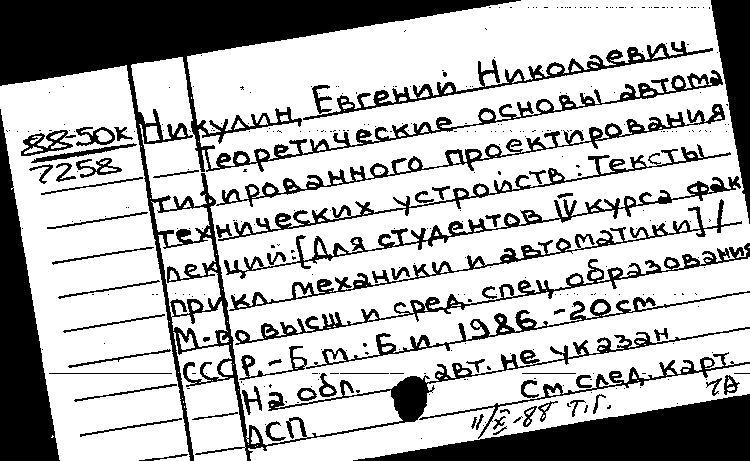 88-50к
7258
Никулин, Евгений Николаевич
Теоретические основы автома
тизированного проектирования
технических устройств: Тексты
лекций: [Для студентов IV курса фак
прикл. механики и автоматики] /
М-во высш. и сред. спец образования
СССР. - Б.м.: Б.и., 1986. - 20см
На обл. авт. не указан.
ДСП. См. след. карт.
11/X-88 Т.Г. ТА